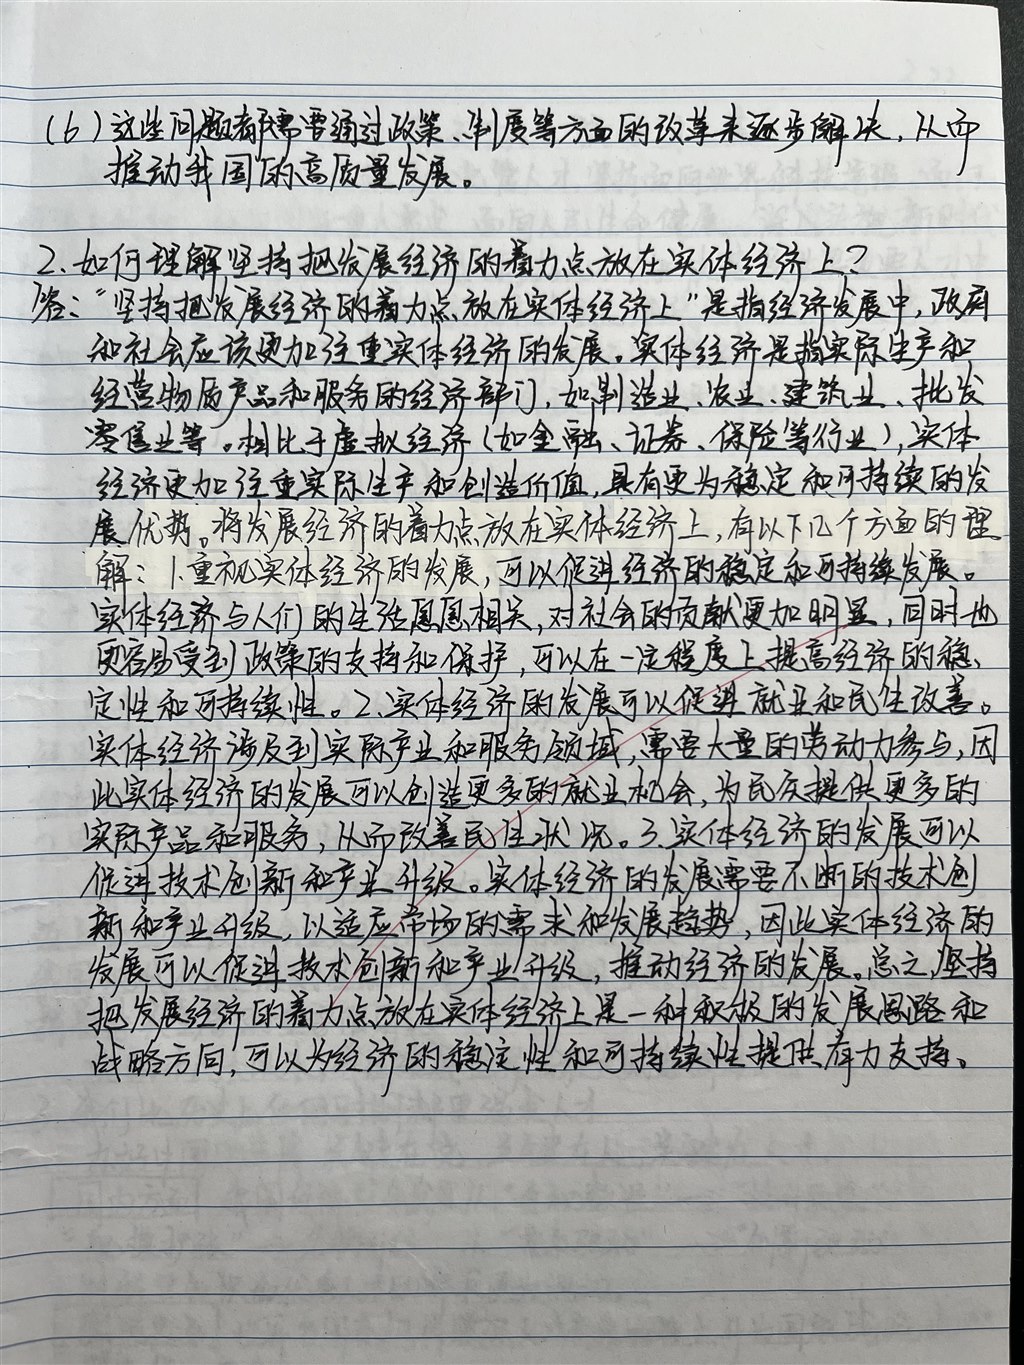 (6)这些问题都需要通过政策、制度等方面的改革来逐步解决，从而
推动我国的高质量发展。
2.如何理解坚持把发展经济的着力点放在实体经济上？
答：“坚持把发展经济的着力点放在实体经济上”是指经济发展中，政府
和社会应该更加注重实体经济的发展。实体经济是指实际生产和
经营物质产品和服务的经济部门，如制造业、农业、建筑业、批发
零售业等。相比于虚拟经济（如金融、证券、保险等行业），实体
经济更加注重实际生产和创造价值，具有更为稳定和可持续的发
展优势。将发展经济的着力点放在实体经济上，有以下几个方面的理
解：1.重视实体经济的发展，可以促进经济的稳定和可持续发展。
实体经济与人们的生活息息相关，对社会的贡献更加明显，同时也
更容易受到政策的支持和保护，可以在一定程度上提高经济的稳
定性和可持续性。2.实体经济的发展可以促进就业和民生改善。
实体经济涉及到实际产业和服务领域，需要大量的劳动力参与，因
此实体经济的发展可以创造更多的就业机会，为民众提供更多的
实际产品和服务，从而改善民生状况。3.实体经济的发展可以
促进技术创新和产业升级。实体经济的发展需要不断的技术创
新和产业升级，以适应市场的需求和发展趋势，因此实体经济的
发展可以促进技术创新和产业升级，推动经济的发展。总之，坚持
把发展经济的着力点放在实体经济上是一种积极的发展思路和
战略方向，可以为经济的稳定性和可持续性提供有力支持。